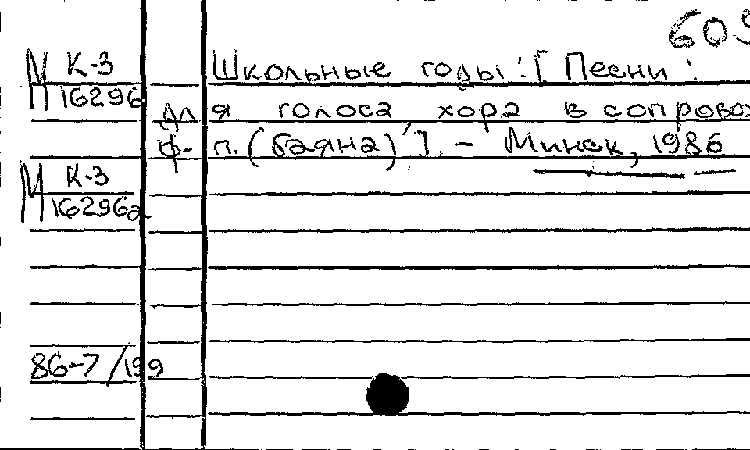 609
М К-3 Школьные годы: [Песни:
П 16296
для голоса хора в сопровож
ф-п. (баяна)]. - Минск, 1986
М К-3
16296а
86-7/199